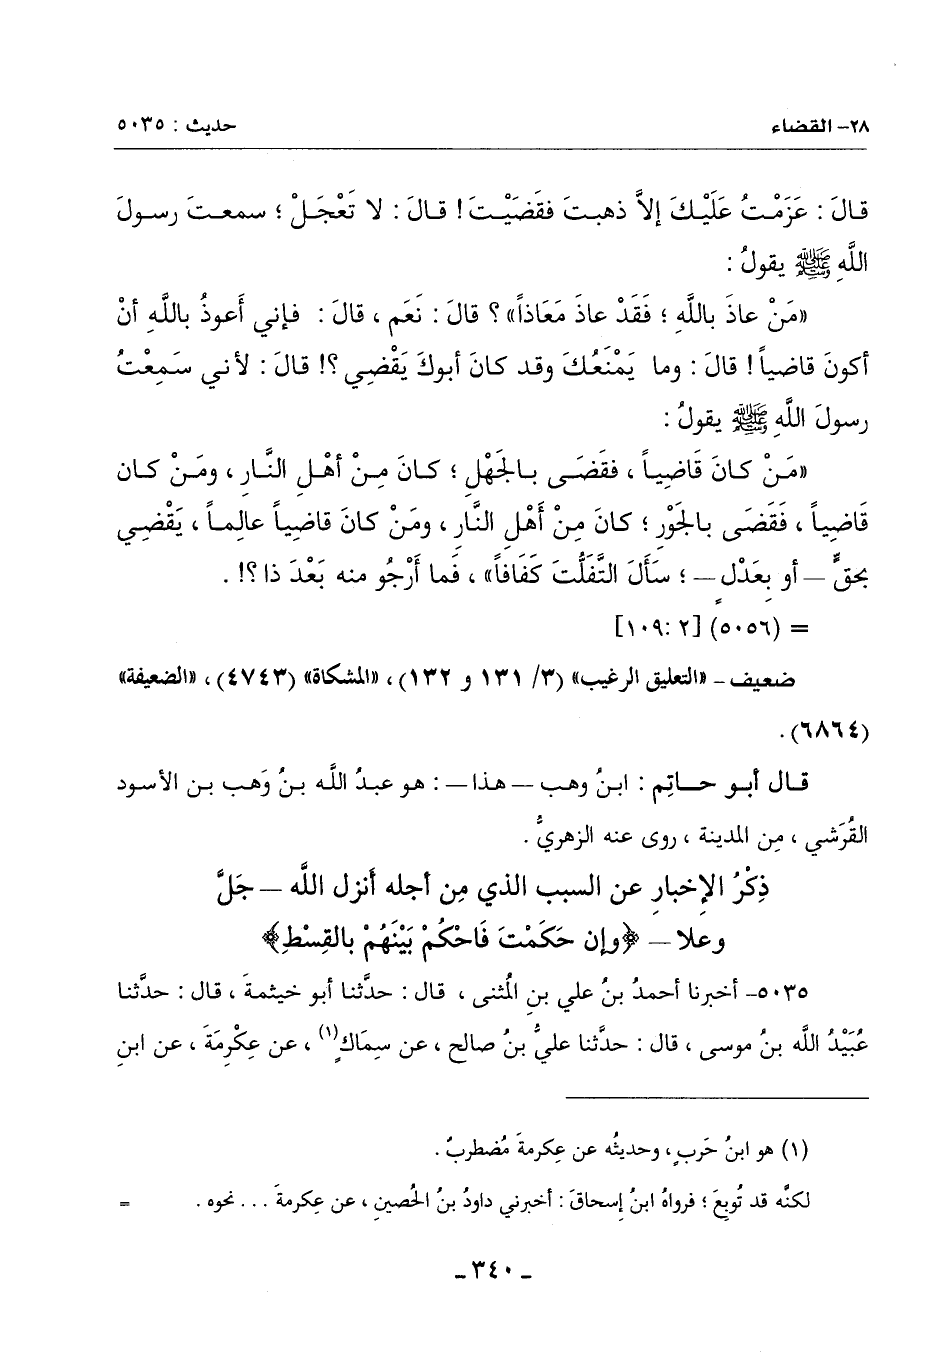 ٢٨- القضاء حديث : ٥٠٣٥
قالَ : عَزَمْتُ عَلَيْكَ إلاَّ ذهبتَ فقَضَيْتَ ! قالَ : لا تَعْجَلْ ؛ سمعتَ رسولَ
اللَّهِ ﷺ يقولُ :
«مَنْ عاذَ باللَّهِ ؛ فَقَدْ عاذَ مَعَاذاً» ؟ قالَ : نَعَم ، قالَ : فإني أعوذُ باللَّهِ أنْ
أكونَ قاضياً ! قالَ : وما يَمْنَعُكَ وقد كانَ أبوكَ يَقْضِي ؟! قالَ : لأني سَمِعْتُ
رسولَ اللَّهِ ﷺ يقولُ :
«مَنْ كانَ قَاضِياً ، فقَضَى بالجَهْلِ ؛ كانَ مِنْ أهْلِ النَّارِ ، ومَنْ كان
قَاضِياً ، فَقَضَى بالجَوْرِ ؛ كانَ مِنْ أَهْلِ النَّارِ ، ومَنْ كانَ قاضِياً عالِماً ، يَقْضِي
بحَقٍّ — أو بِعَدْلٍ — ؛ سَأَلَ التَّفَلُّتَ كَفَافاً» ، فَما أَرْجُو منه بَعْدَ ذا ؟! .
= (٥٠٥٦) [٢ :١٠٩]
ضعيف - «التعليق الرغيب» (٣/ ١٣١ و ١٣٢) ، «المشكاة» (٤٧٤٣) ، «الضعيفة»
(٦٨٦٤) .
قال أبو حاتِم : ابنُ وهب — هذا — : هو عبدُ اللَّه بنُ وَهب بن الأسود
القُرَشي ، مِن المدينة ، روى عنه الزهريُّ .
ذِكْرُ الإخبارِ عن السببِ الذي مِن أجله أنزل اللَّه — جَلَّ
وعلا — ﴿وإن حَكَمْتَ فَاحْكُمْ بَيْنَهُمْ بالقِسْطِ﴾
٥٠٣٥- أخبرنا أحمدُ بنُ علي بنِ المُثنى ، قال : حدَّثنا أبو خيثمةَ ، قال : حدَّثنا
عُبَيْدُ اللَّه بنُ موسى ، قال : حدثنا عليُّ بنُ صالح ، عن سِمَاكٍ(١) ، عن عِكْرِمَةَ ، عن ابنِ
(١) هو ابنُ حَربٍ ، وحديثُه عن عِكرمةَ مُضطربٌ .
لكنَّه قد تُوبِعَ ؛ فرواهُ ابنُ إسحاقَ : أخبرني داودُ بنُ الحُصينِ ، عن عِكرمةَ . . . نحوه . =
- ٣٤٠ -